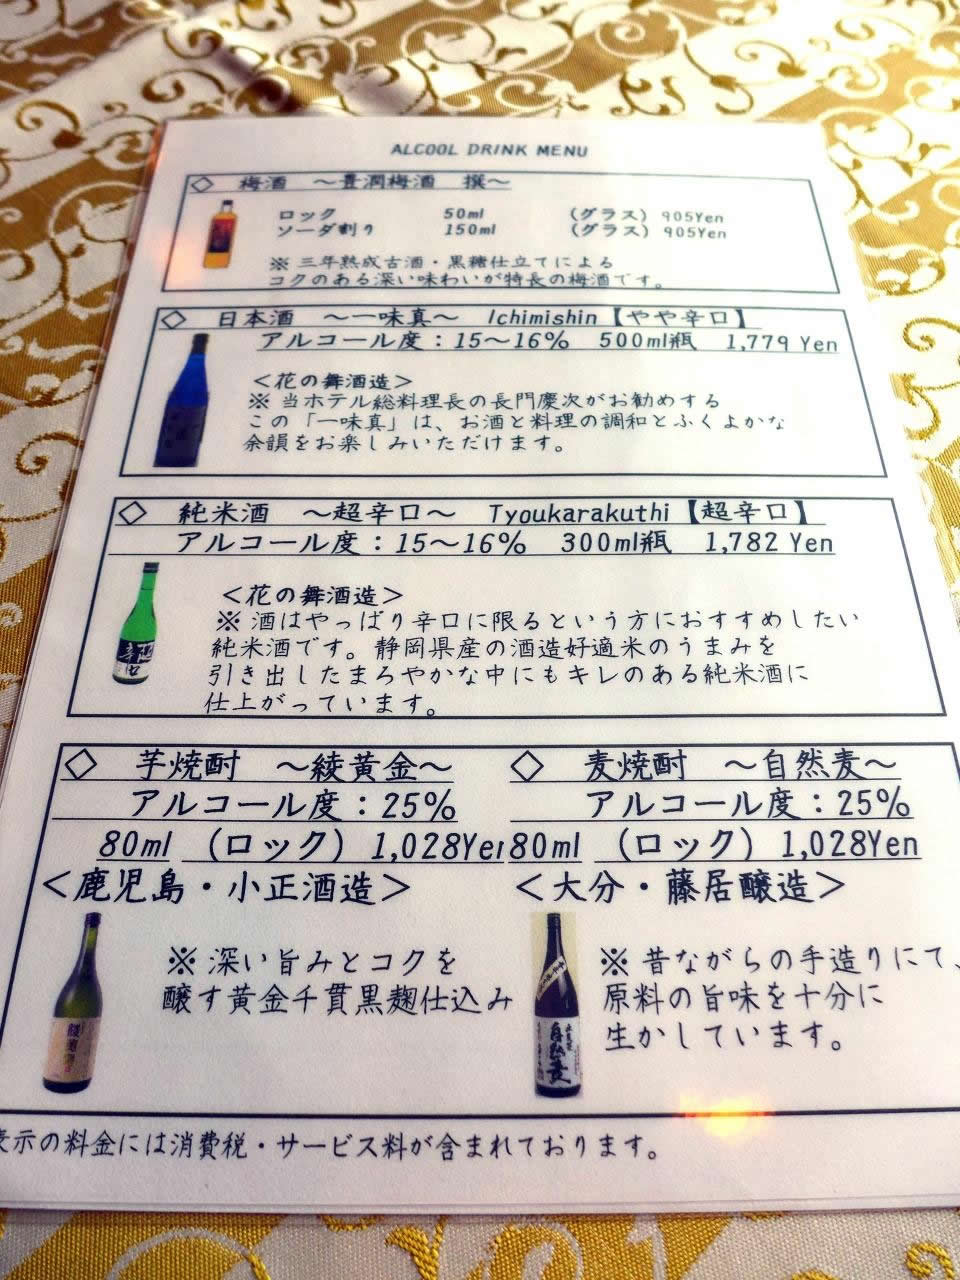 ALCOOL DRINK MENU
◇ 梅酒 ～豊潤梅酒 撰～
ロック 50ml (グラス) 905Yen
ソーダ割り 150ml (グラス) 905Yen
※ 三年熟成古酒・黒糖仕立てによる
コクのある深い味わいが特長の梅酒です。
◇ 日本酒 ～一味真～ Ichimishin【やや辛口】
アルコール度：15～16% 500ml瓶 1,779 Yen
＜花の舞酒造＞
※ 当ホテル総料理長の長門慶次がお勧めする
この「一味真」は、お酒と料理の調和とふくよかな
余韻をお楽しみいただけます。
◇ 純米酒 ～超辛口～ Tyoukarakuthi【超辛口】
アルコール度：15～16% 300ml瓶 1,782 Yen
＜花の舞酒造＞
※ 酒はやっぱり辛口に限るという方におすすめしたい
純米酒です。静岡県産の酒造好適米のうまみを
引き出したまろやかな中にもキレのある純米酒に
仕上がっています。
超辛口
◇ 芋焼酎 ～綾黄金～
アルコール度：25%
80ml (ロック) 1,028Yen
＜鹿児島・小正酒造＞
※ 深い旨みとコクを
醸す黄金千貫黒麹仕込み
綾黄金
◇ 麦焼酎 ～自然麦～
アルコール度：25%
80ml (ロック) 1,028Yen
＜大分・藤居醸造＞
※ 昔ながらの手造りにて、
原料の旨味を十分に
生かしています。
自然麦
表示の料金には消費税・サービス料が含まれております。